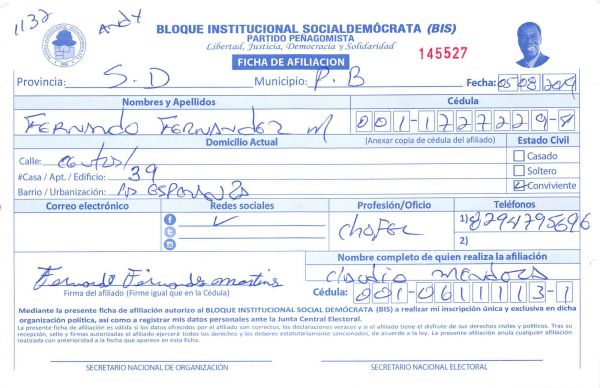 1132 Andy
BLOQUE INSTITUCIONAL SOCIALDEMÓCRATA (BIS)
PARTIDO PEÑAGOMISTA
Libertad, Justicia, Democracia y Solidaridad
FICHA DE AFILIACION
145527
Provincia: S. D Municipio: P. B Fecha: 05 08 2019
Nombres y Apellidos Cédula
FERNANDO FERNANDEZ M 001-1727229-8
Domicilio Actual (Anexar copia de cédula del afiliado) Estado Civil
Calle:
#Casa / Apt. / Edificio: 39
Barrio / Urbanización:
Casado
Soltero
Conviviente
Correo electrónico Redes sociales Profesión/Oficio Teléfonos
f
chofer
1) 8294795696
2)
Nombre completo de quien realiza la afiliación
Claudio MENDOZA
Fernando Fernandez martins
Firma del afiliado (Firme igual que en la Cédula)
Cédula: 001-0611113-1
Mediante la presente ficha de afiliación autorizo al BLOQUE INSTITUCIONAL SOCIAL DEMÓCRATA (BIS) a realizar mi inscripción única y exclusiva en dicha
organización política, así como a registrar mis datos personales ante la Junta Central Electoral.
La presente ficha de afiliación es válida si los datos ofrecidos por el afiliado son correctos, las declaraciones veraces y si el afiliado tiene el disfrute de sus derechos civiles y políticos. Tras su
recepción, sello y firmas autorizadas el afiliado ejercerá todos los derechos y los deberes estatutariamente sancionados, de acuerdo a la ley. La presente afiliación anula cualquier afiliación
realizada con anterioridad a la fecha que aparece en esta ficha.
SECRETARIO NACIONAL DE ORGANIZACIÓN SECRETARIO NACIONAL ELECTORAL